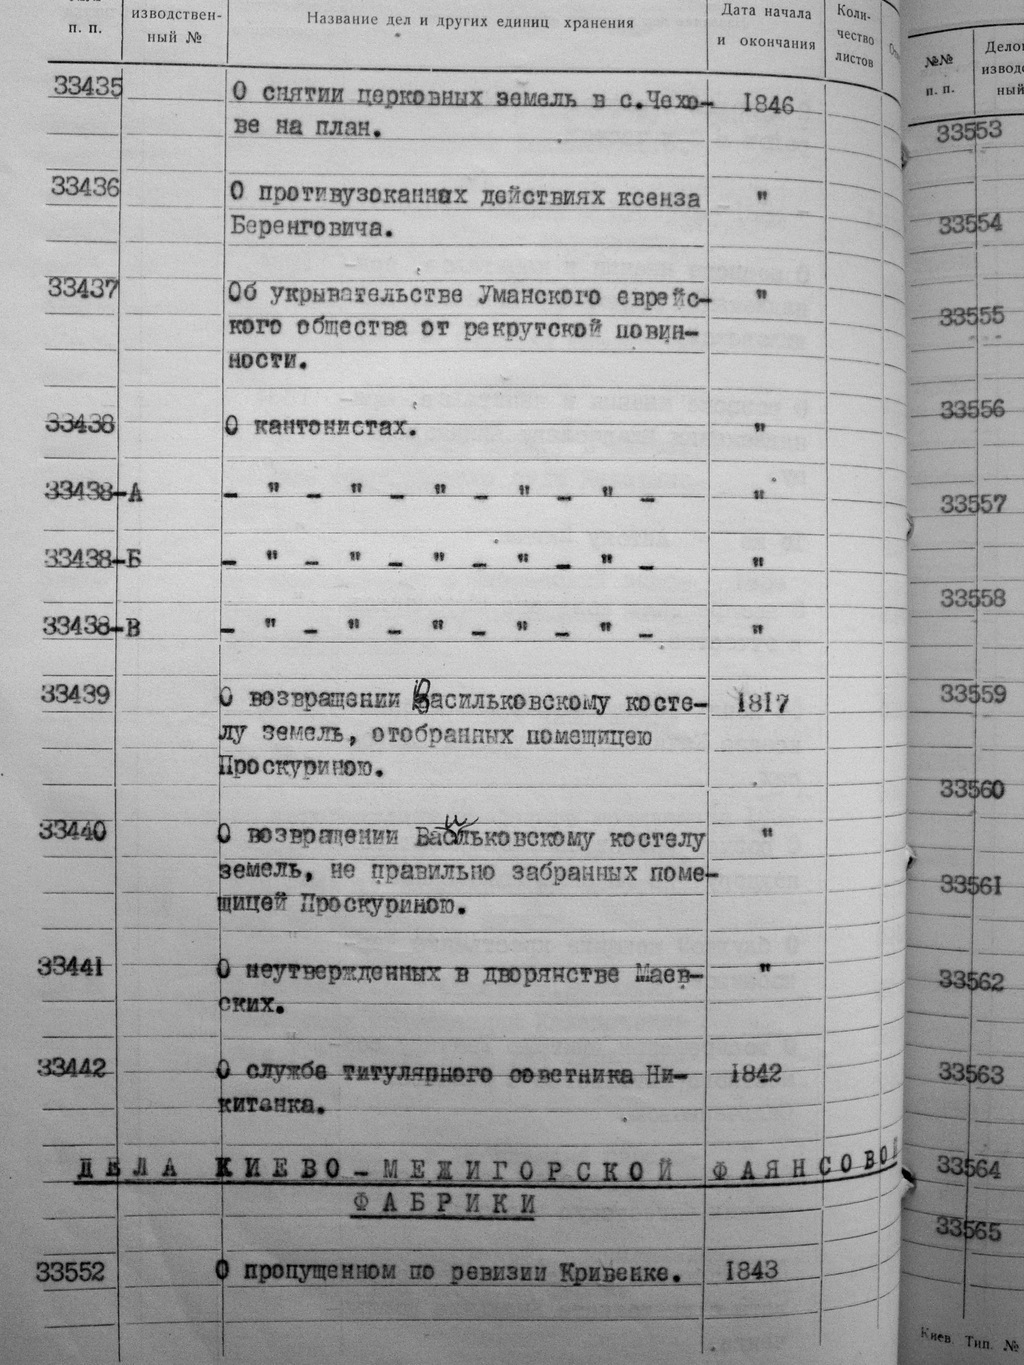 п. п.
изводствен-
ный №
Название дел и других единиц хранения
Дата начала
и окончания
Коли-
чество
листов
33435 О снятии церковных земель в с.Чехо- 1846
ве на план.
33436 О противузоканных действиях ксенза "
Беренговича.
33437 Об укрывательстве Уманского еврейс- "
кого общества от рекрутской повин-
ности.
33438 О кантонистах. "
33438-А - " - " - " - " - " - "
33438-Б - " - " - " - " - " - "
33438-В - " - " - " - " - " - "
33439 О возвращении Васильковскому косте- 1817
лу земель, отобранных помещицею
Проскуриною.
33440 О возвращении Васильковскому костелу "
земель, не правильно забранных поме-
щицей Проскуриною.
33441 О неутвержденных в дворянстве Маев- "
ских.
33442 О службе титулярного советника Ни- 1842
китенка.
ДЕЛА КИЕВО-МЕЖИГОРСКОЙ ФАЯНСОВОЙ
ФАБРИКИ
33552 О пропущенном по ревизии Кривенке. 1843
№№
п. п.
Дело
извод
ный
33553
33554
33555
33556
33557
33558
33559
33560
33561
33562
33563
33564
33565
Киев. Тип. №